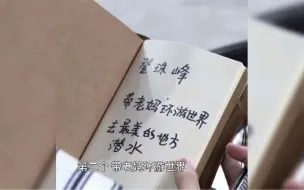 登珠峰
带老妈环游世界
去最美的地方
潜水
第二个 带老妈环游世界